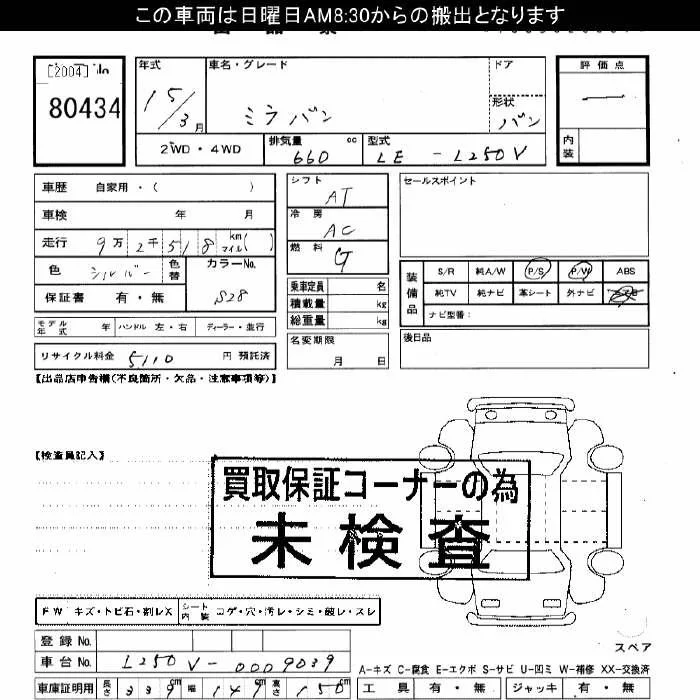 この車両は日曜日AM8:30からの搬出となります
[2004]
80434
年式
15/3月
車名・グレード
ミラバン
ドア
形状
バン
評価点
内装
2WD・4WD
排気量 cc
660
型式
LE - L250V
車歴 自家用・( )
車検 年 月
走行 9万2千518 kmマイル( )
色 シルバー 色替
カラーNo.
S28
保証書 有・無
モデル年式 年 ハンドル 左・右 ディーラー・並行
リサイクル料金 5110 円 預託済
シフト
AT
冷房
AC
燃料
G
乗車定員 名
積載量 kg
総重量 kg
名変期限
月 日
セールスポイント
装備品
S/R 純A/W P/S P/W ABS
純TV 純ナビ 革シート 外ナビ
ナビ型番:
後日品
【出品店申告欄(不良箇所・欠品・注意事項等)】
【検査員記入】
買取保証コーナーの為
未検査
FW キズ・トビ石・割レX
シート内装 コゲ・穴・汚レ・シミ・破レ・スレ
登録No.
車台No. L250V-0009039
車庫証明用 長さ 339cm 幅 149cm 高さ 150cm
スペア
A-キズ C-腐食 E-エクボ S-サビ U-凹ミ W-補修 XX-交換済
工具 有・無 ジャッキ 有・無